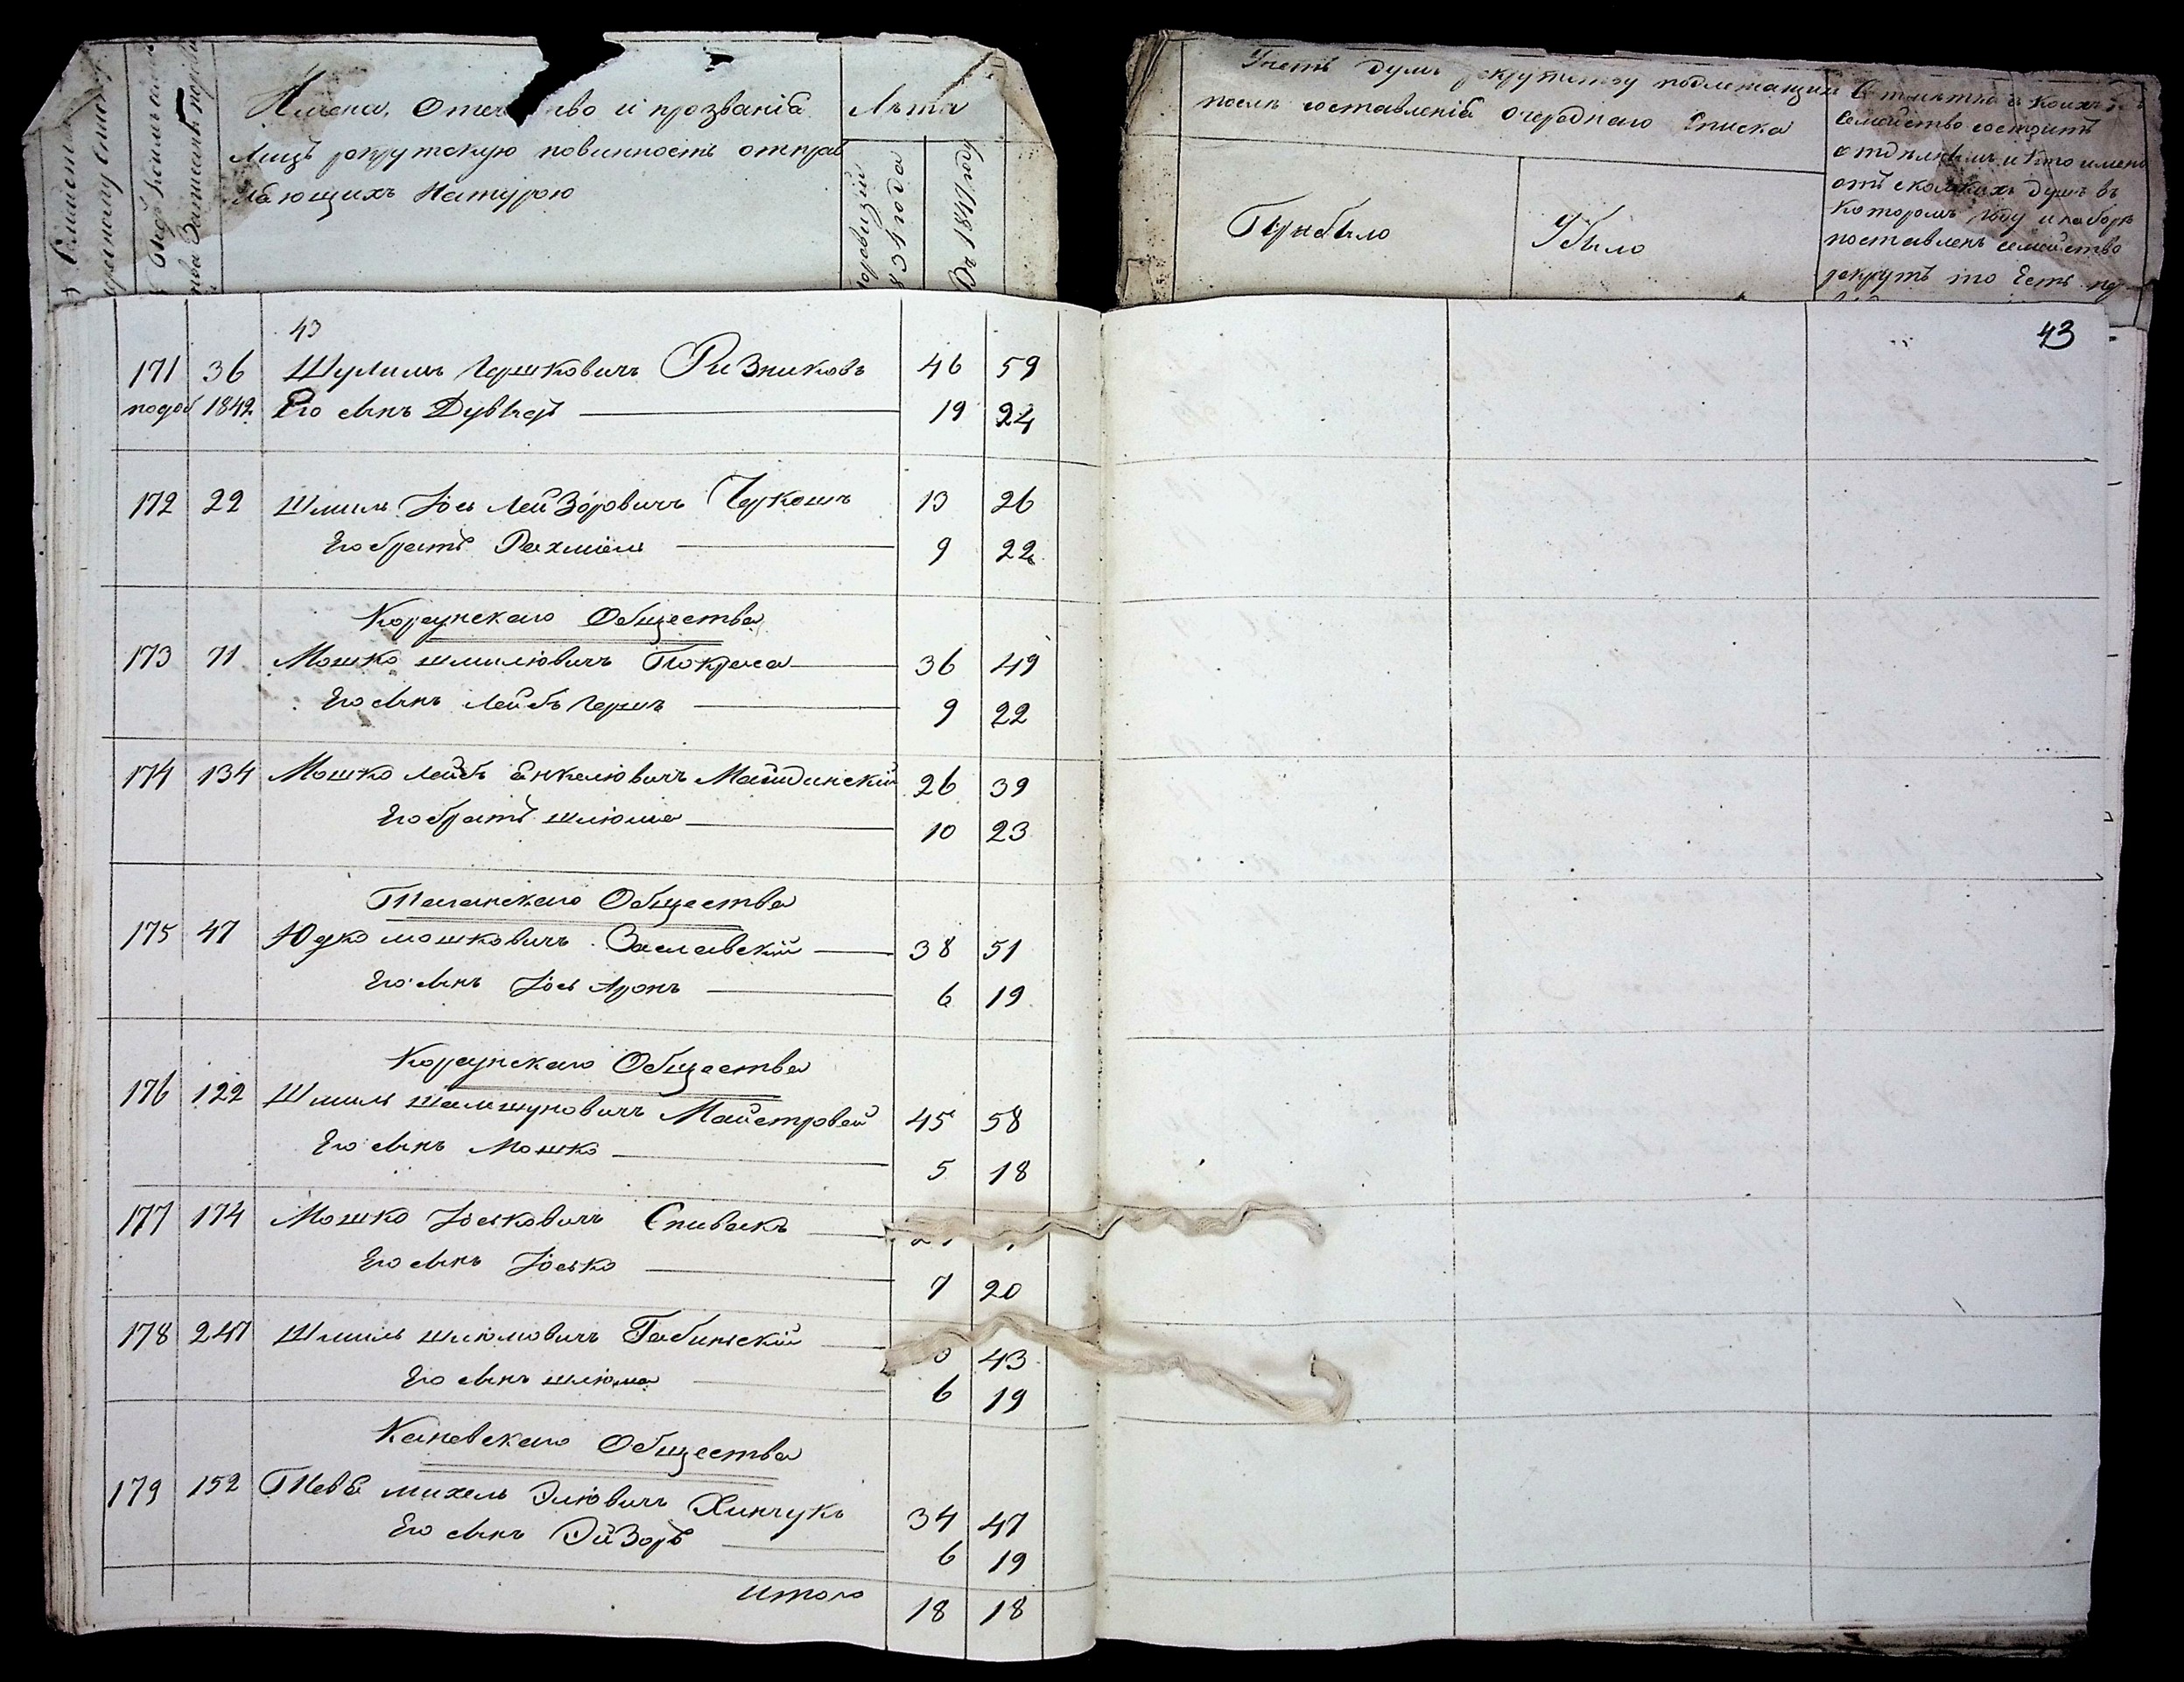 Имена, Отечество и прозванія
Лицъ рекрутскую повинность отправ
ляющихъ Натурою
Лѣта
по ревизіи
1834 года
Въ 1847 году
Учетъ душъ рекрутству подлежащихъ
послѣ составленія Очереднаго Списка
Прибыло
Убыло
семейство состоитъ
Которомъ году и наборѣ
поставленъ семейство
рекрутъ то Есть
43
43
171 36 Шулимъ Гершковичъ Ризниковъ 46 59
1842 Его сынъ Дувидъ 19 24
172 22 Шмиль Іось Лейзоровичъ Черкошъ 13 26
Его братъ Рахміель 9 22
Корсунскаго Общества
173 71 Мошко шмилювичъ Покраса 36 49
Его сынъ Лейбъ Гершъ 9 22
174 134 Мошко Лейбъ Енкелювичъ Майданскій 26 39
Его братъ шлюма 10 23
Таганскаго Общества
175 47 Юдко мошковичъ Заславскій 38 51
Его сынъ Іось Аронъ 6 19
Корсунскаго Общества
176 122 Шмиль шамшуновичъ Майстровой 45 58
Его сынъ Мошко 5 18
177 174 Мошко Іосковичъ Спивакъ
Его сынъ Іосько 7 20
178 247 Шмиль шлюмовичъ Габинскій 43
Его сынъ шлюма 6 19
Каневскаго Общества
179 152 Тевье михель Элювичъ Хинчукъ 34 47
Его сынъ Эйзоръ 6 19
итого 18 18